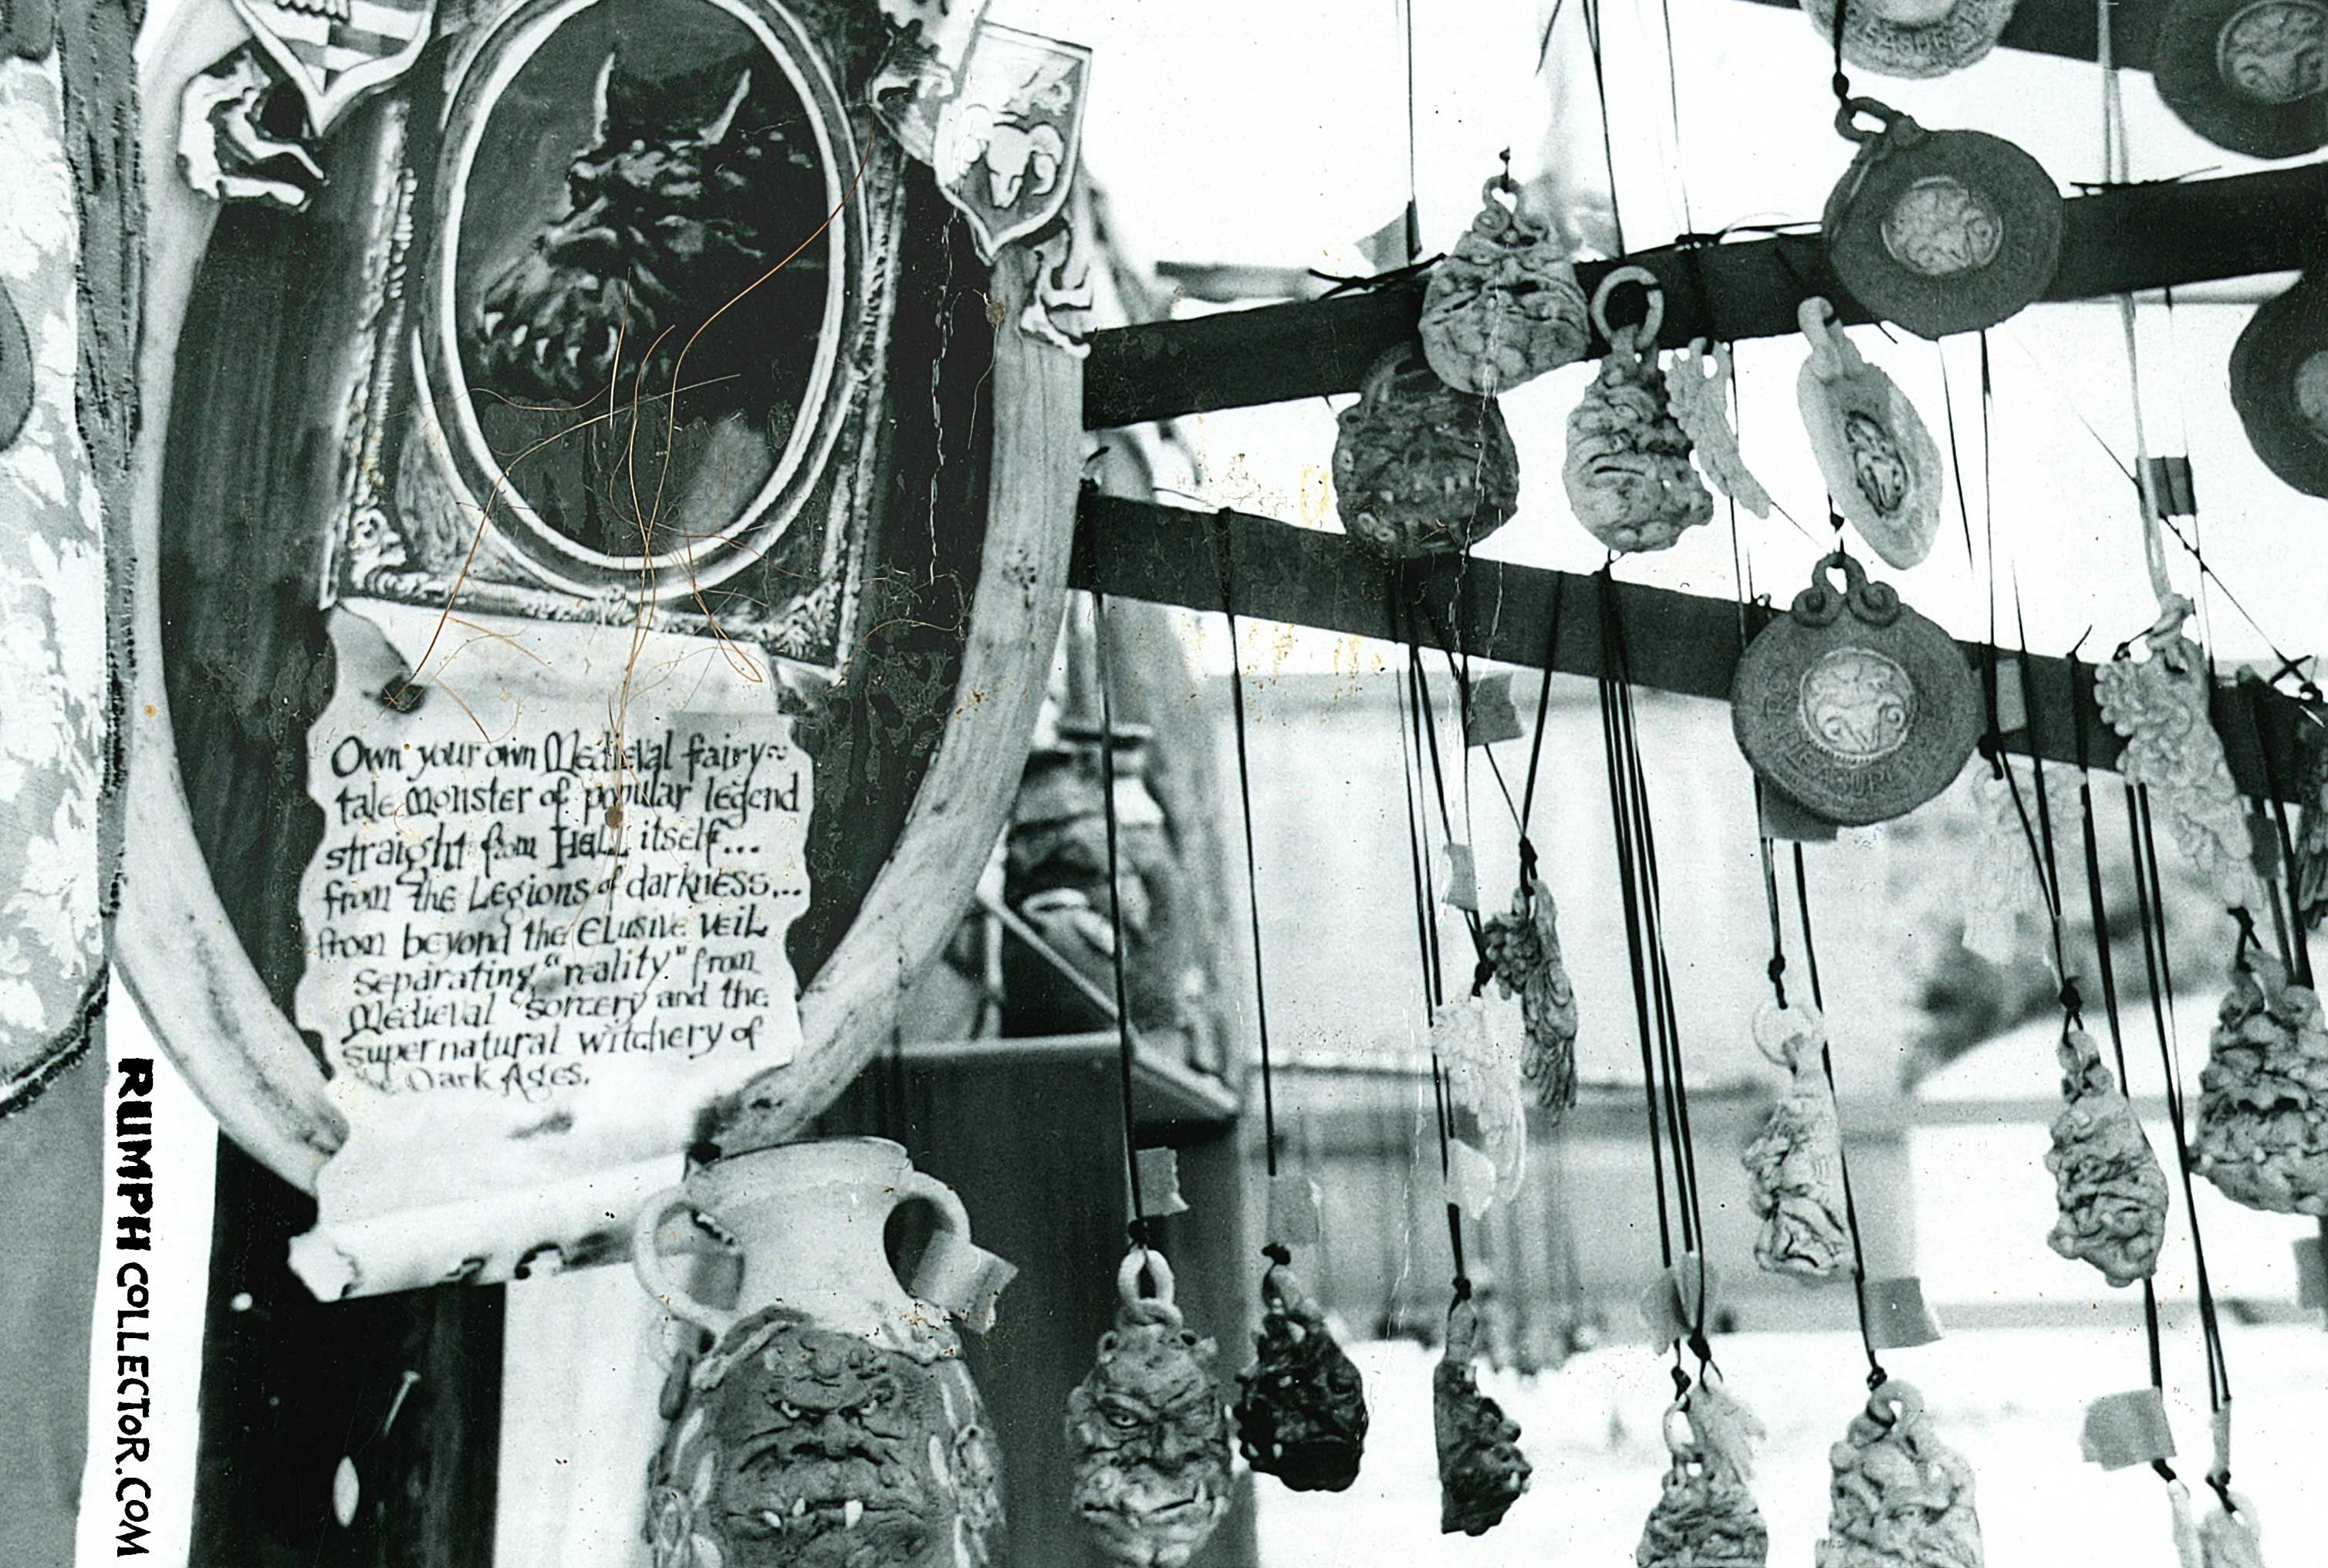 Own your own Medieval fairy-
tale monster of popular legend
straight from Hell itself...
from the Legions of darkness...
from beyond the Elusive veil
separating "reality" from
Medieval sorcery and the
supernatural witchery of
the Dark Ages.
RUMPH COLLECTOR.COM